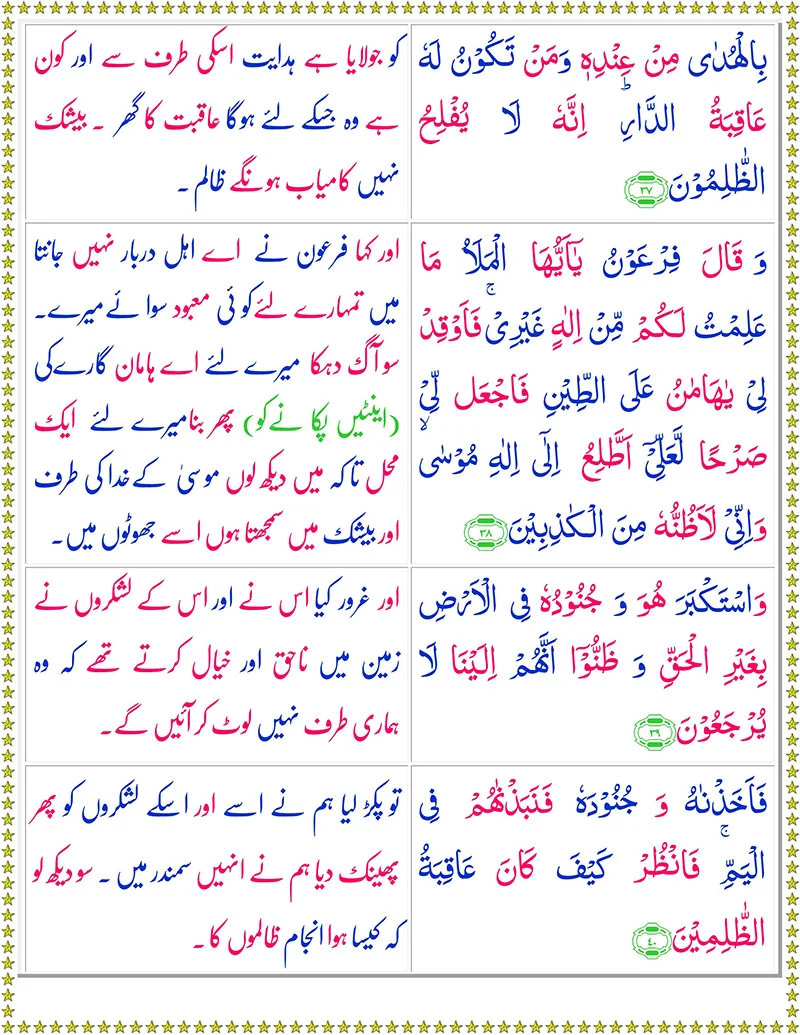 بِالْهُدٰى مِنْ عِنْدِهٖ وَمَنْ تَكُوْنُ لَهٗ
عَاقِبَةُ الدَّارِ ؕ اِنَّهٗ لَا يُفْلِحُ
الظّٰلِمُوْنَ ٣٧
کو جولایا ہے ہدایت اسکی طرف سے اور کون
ہے وہ جسکے لئے ہوگا عاقبت کا گھر ۔ بیشک
نہیں کامیاب ہونگے ظالم ۔
وَ قَالَ فِرْعَوْنُ يٰۤاَيُّهَا الْمَلَاُ مَا
عَلِمْتُ لَكُمْ مِّنْ اِلٰهٍ غَيْرِىْ ۚ فَاَوْقِدْ
لِىْ يٰهَامٰنُ عَلَى الطِّيْنِ فَاجْعَل لِّىْ
صَرْحًا لَّعَلِّىْۤ اَطَّلِعُ اِلٰٓى اِلٰهِ مُوْسٰى ۙ
وَاِنِّىْ لَاَظُنُّهٗ مِنَ الْكٰذِبِيْنَ ٣٨
اور کہا فرعون نے اے اہل دربار نہیں جانتا
میں تمہارے لئے کو ئی معبود سوا ئے میرے ۔
سو آگ دہکا میرے لئے اے ہامان گارے کی
(اینٹیں پکا نے کو) پھر بنا میرے لئے ایک
محل تا کہ میں دیکھ لوں موسیٰ کے خدا کی طرف
اور بیشک میں سمجھتا ہوں اسے جھوٹوں میں ۔
وَاسْتَكْبَرَ هُوَ وَ جُنُوْدُهٗ فِى الْاَرْضِ
بِغَيْرِ الْحَقِّ وَ ظَنُّوْۤا اَنَّهُمْ اِلَيْنَا لَا
يُرْجَعُوْنَ ٣٩
اور غرور کیا اس نے اور اس کے لشکروں نے
زمین میں ناحق اور خیال کرتے تھے کہ وہ
ہماری طرف نہیں لوٹ کر آئیں گے ۔
فَاَخَذْنٰهُ وَ جُنُوْدَهٗ فَنَبَذْنٰهُمْ فِى
الْيَمِّ ۚ فَانْظُرْ كَيْفَ كَانَ عَاقِبَةُ
الظّٰلِمِيْنَ ٤٠
تو پکڑ لیا ہم نے اسے اور اسکے لشکروں کو پھر
پھینک دیا ہم نے انہیں سمندر میں ۔ سو دیکھ لو
کہ کیسا ہوا انجام ظالموں کا ۔